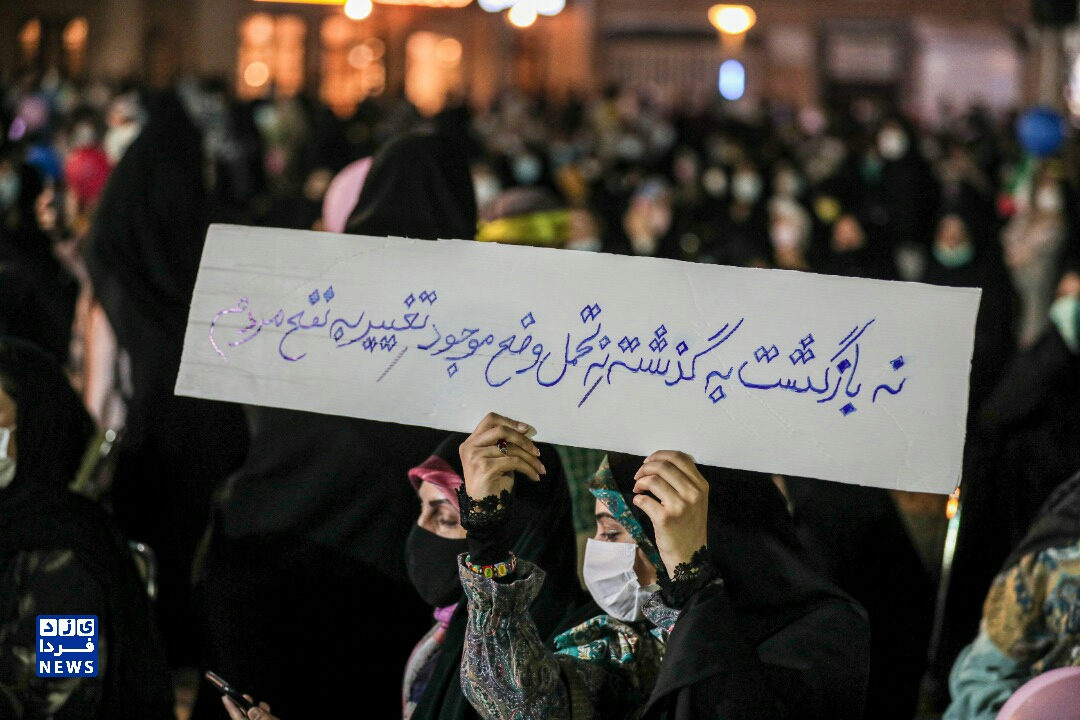 نه بازگشت به گذشته نه تحمل وضع موجود تغییر به نفع مردم
یزد
فردا
NEWS